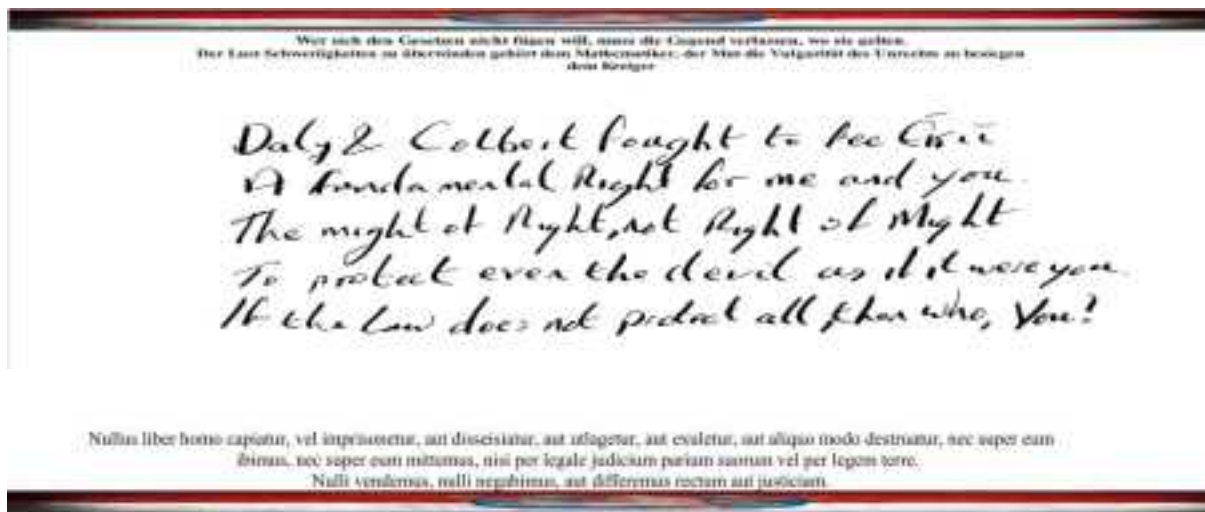 Wer sich den Gesetzen nicht fügen will, muss die Gegend verlassen, wo sie gelten.
Der Lust Schwerigkeiten zu überwinden gehört dem Mathematiker, der Mut die Vulgarität des Unrechts zu besiegen
dem Kreiger
Daly & Colbert fought to
A fundamental Right for me and you.
The might of Right, not Right of Might
To protect even the devil as if it were you.
If the Law does not protect all then who, You?
Nullus liber homo capiatur, vel imprisonetur, aut disseisiatur, aut utlagetur, aut exuletur, aut aliquo modo destruatur, nec super eum
ibimus, nec super eum mittemus, nisi per legale judicium parium suorum vel per legem terre.
Nulli vendemus, nulli negabimus, aut differemus rectum aut justiciam.